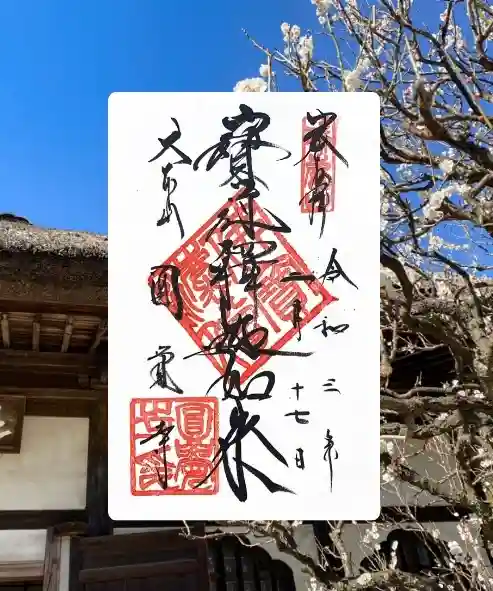 奉拝
令和三年
一月十七日
寳冠釋迦如来
大本山
圓覺寺